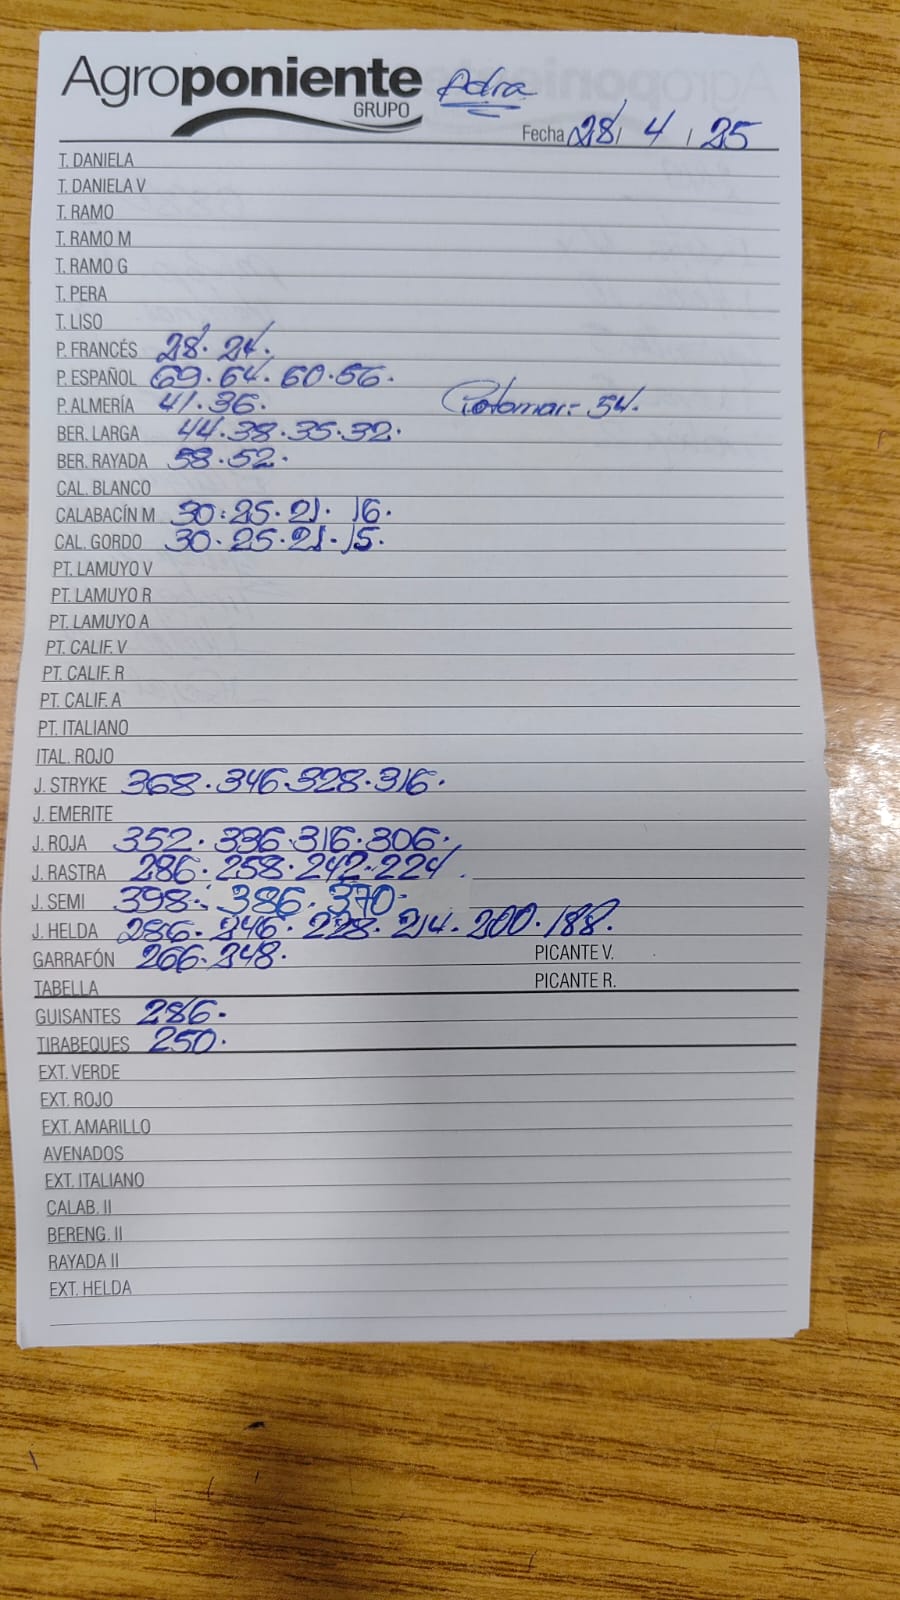 Agroponiente Adra
GRUPO
Fecha 28 / 4 / 25
T. DANIELA
T. DANIELA V
T. RAMO
T. RAMO M
T. RAMO G
T. PERA
T. LISO
P. FRANCÉS 28. 24.
P. ESPAÑOL 69. 64. 60. 56.
P. ALMERÍA 41. 36. = 54.
BER. LARGA 44. 38. 35. 32.
BER. RAYADA 58. 52.
CAL. BLANCO
CALABACÍN M 30. 25. 21. 16.
CAL. GORDO 30. 25. 21. 15.
PT. LAMUYO V
PT. LAMUYO R
PT. LAMUYO A
PT. CALIF. V
PT. CALIF. R
PT. CALIF. A
PT. ITALIANO
ITAL. ROJO
J. STRYKE 368. 346. 328. 316.
J. EMERITE
J. ROJA 352. 336. 316. 306.
J. RASTRA 286. 258. 242. 224.
J. SEMI 398. 386. 370.
J. HELDA 286. 246. 228. 214. 200. 188.
GARRAFÓN 266. 248. PICANTE V.
TABELLA PICANTE R.
GUISANTES 286.
TIRABEQUES 250.
EXT. VERDE
EXT. ROJO
EXT. AMARILLO
AVENADOS
EXT. ITALIANO
CALAB. II
BERENG. II
RAYADA II
EXT. HELDA